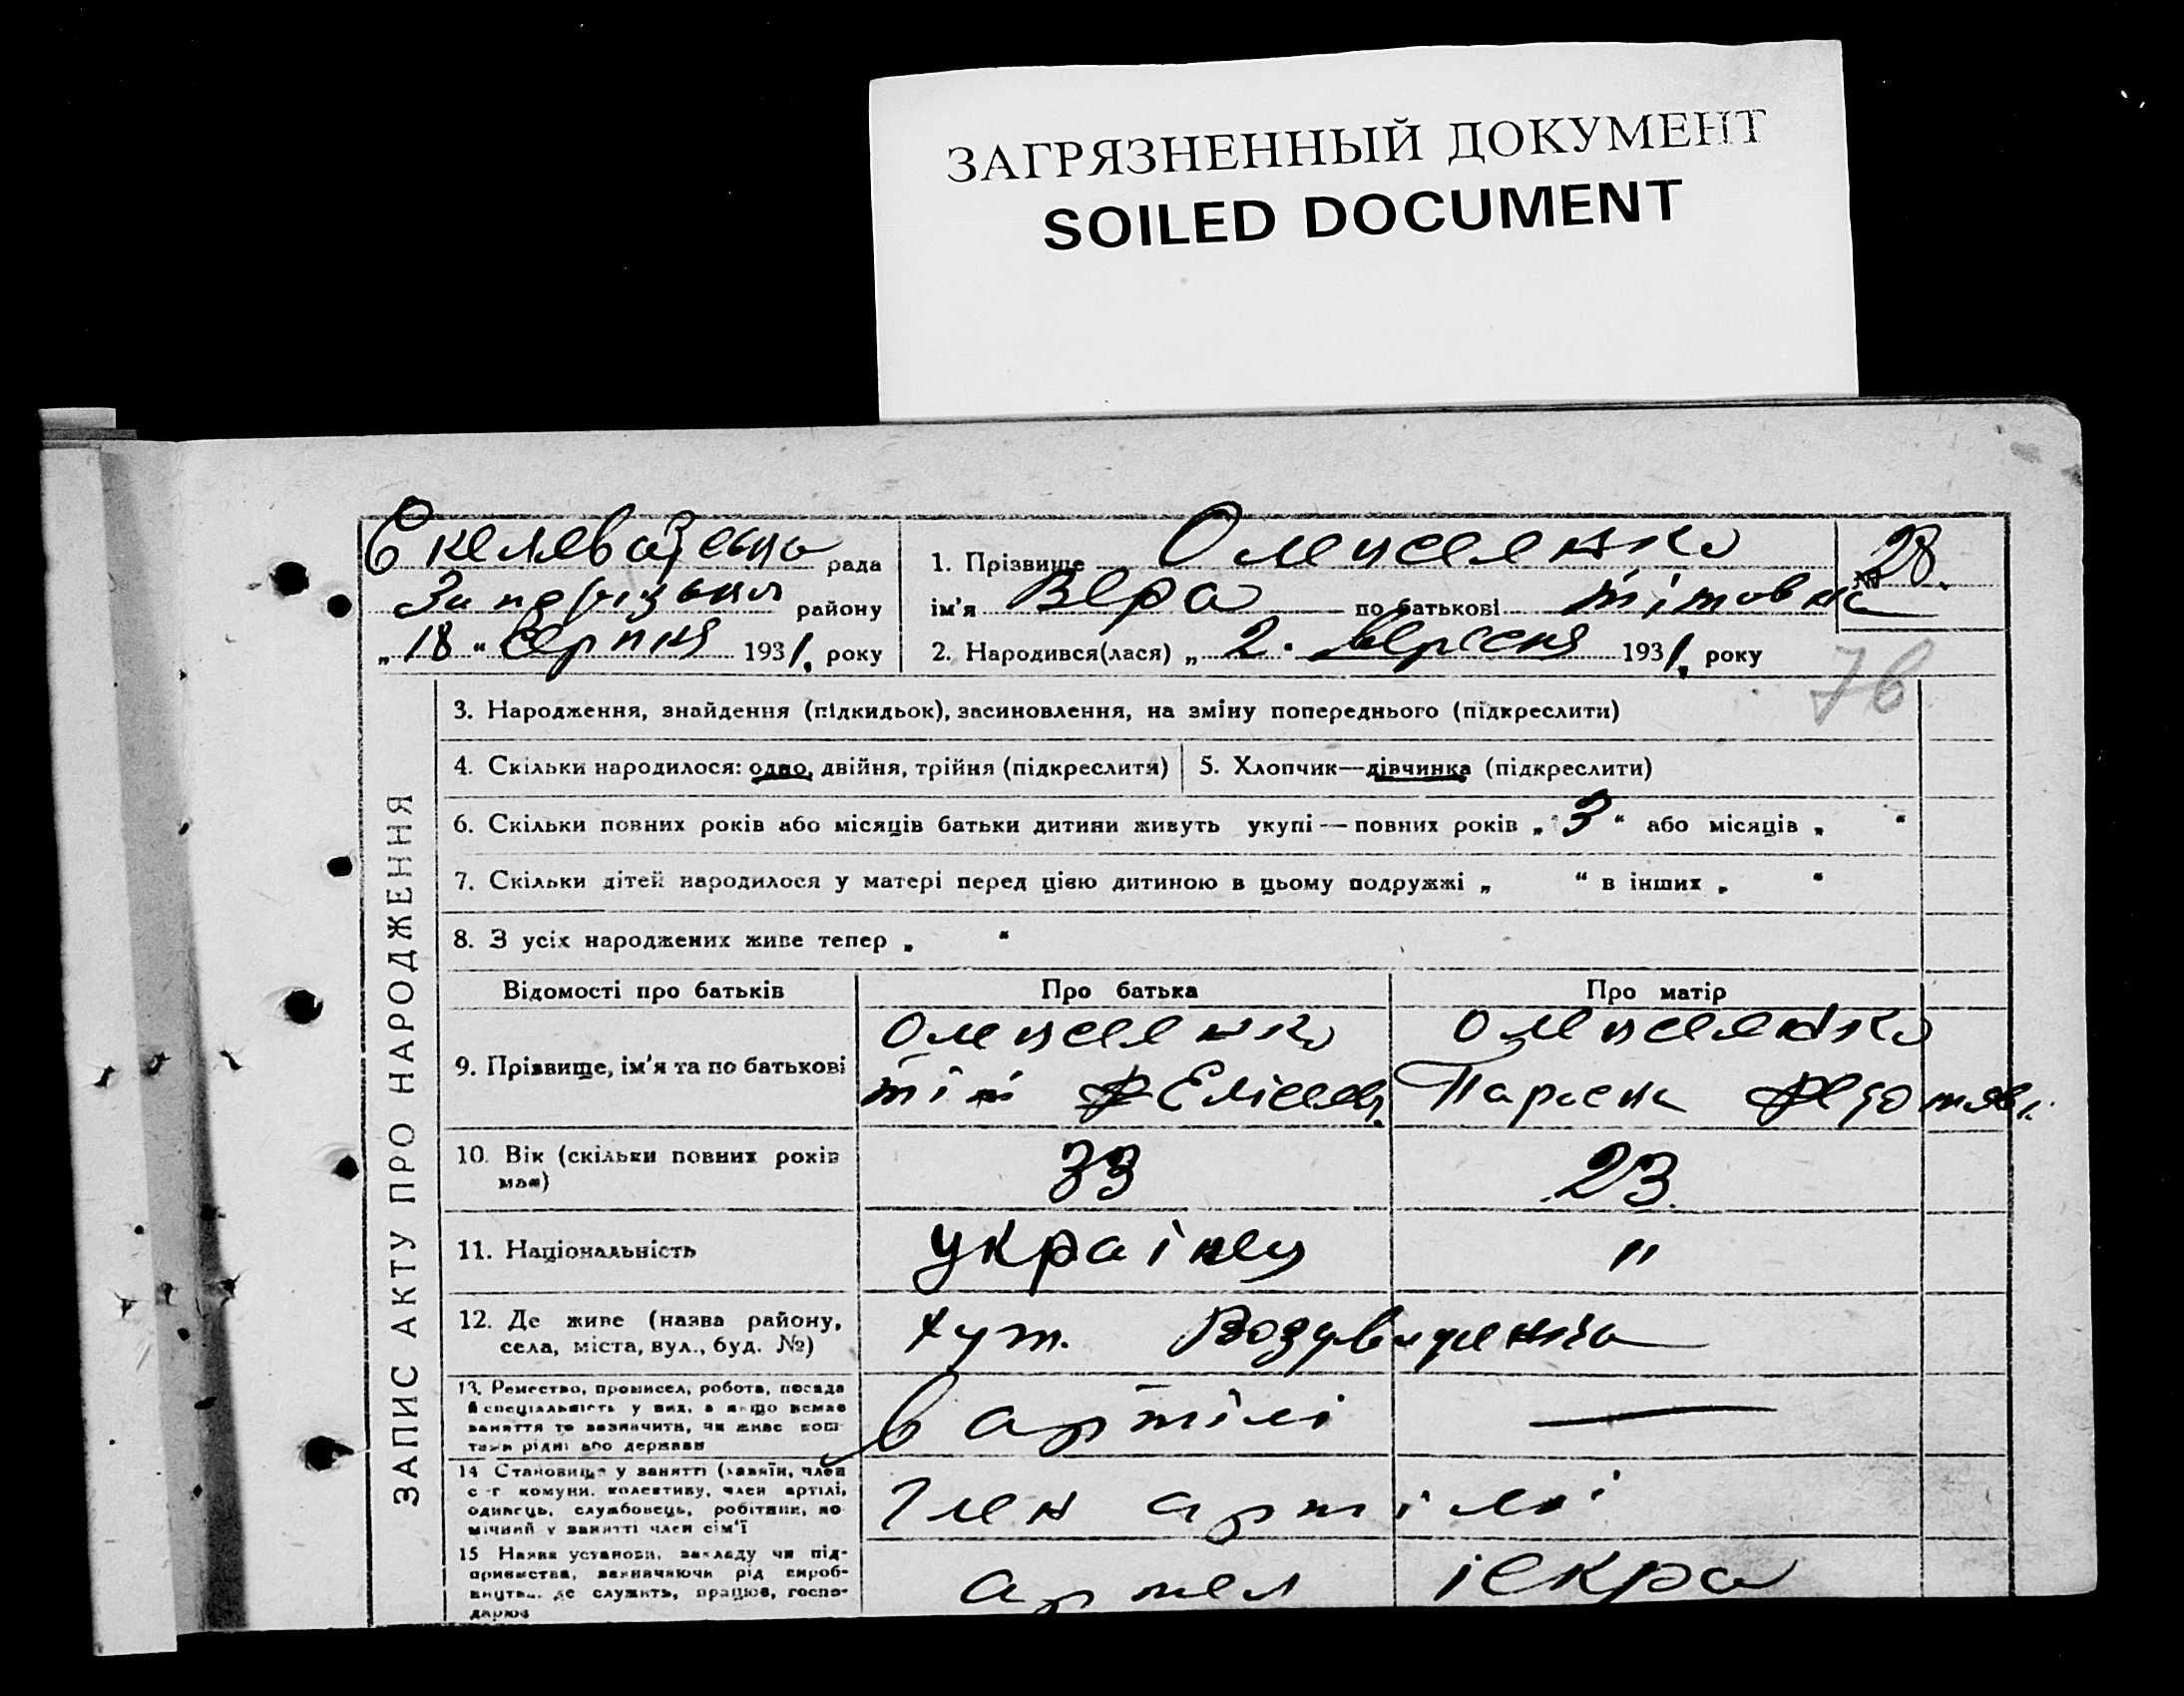 ЗАГРЯЗНЕННЫЙ ДОКУМЕНТ
SOILED DOCUMENT
рада
району
„ 18 “ Серпня 1931. року
1. Прізвище Олексеенко
ім'я Вера по батькові Тітовна
№ 28.
2. Народився(лася) „ 2. Вересня 1931. року
76
ЗАПИС АКТУ ПРО НАРОДЖЕННЯ
3. Народження, знайдення (підкидьок), засиновлення, на зміну попереднього (підкреслити)
4. Скільки народилося: одно, двійня, трійня (підкреслити)
5. Хлопчик—дівчинка (підкреслити)
6. Скільки повних років або місяців батьки дитини живуть укупі — повних років „ 3 “ або місяців „ “
7. Скільки дітей народилося у матері перед цією дитиною в цьому подружжі „ “ в інших „ “
8. З усіх народжених живе тепер „ “
Відомості про батьків
Про батька
Про матір
9. Прізвище, ім'я та по батькові
Олексеенко
Тіт Еліссев.
Олексеенко
Параска
10. Вік (скільки повних років
має)
33
23.
11. Національність
українец
"
12. Де живе (назва району,
села, міста, вул., буд. №)
хут. Воздвиженка
13. Ремество, промисел, робота, посада
й спеціяльність у них, а якщо немає
заняття то зазначити, чи живе кош-
тами рідні або держави
в артілі
14 Становище у занятті (хазяїн, член
с-г комуни, колективу, член артілі,
одинець, службовець, робітник, по-
мічний у занятті член сім'ї
член артілі
15 Назва установи, закладу чи під-
приємства, зазначаючи рід вироб-
ництва, де служить, працює, госпо-
дарює
артел іскра